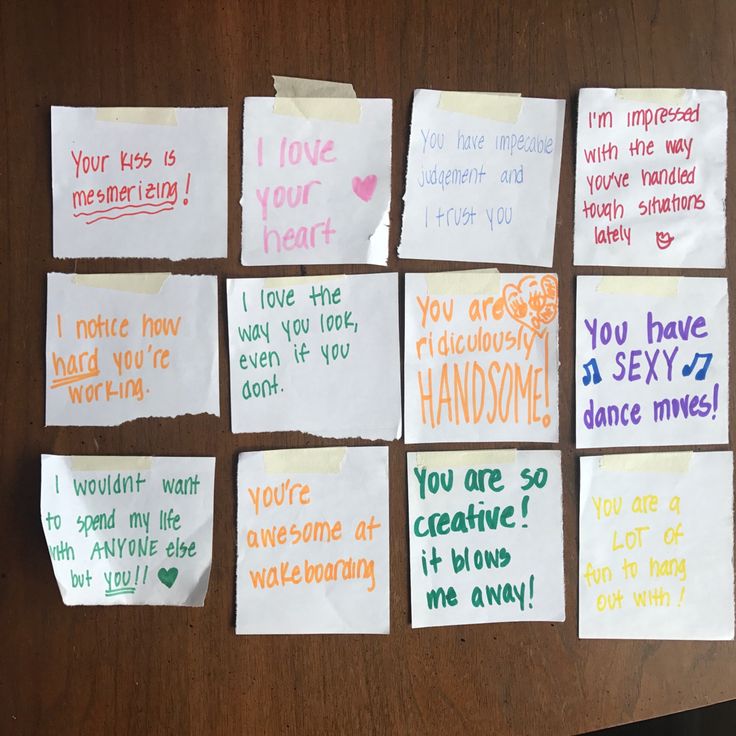 Your kiss is
mesmerizing!
I love
your
heart
You have impecable
judgement and
I trust you
I'm impressed
with the way
you've handled
tough situations
lately
I notice how
hard you're
working.
I love the
way you look,
even if you
dont.
You are
ridiculously
HANDSOME!
You have
SEXY
dance moves!
I wouldnt want
to spend my life
with ANYONE else
but you!!
You're
awesome at
wakeboarding
You are so
creative!
it blows
me away!
You are a
LOT of
fun to hang
out with!